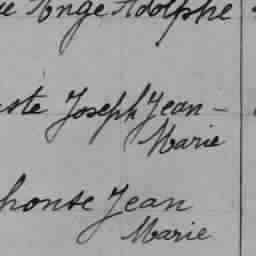 Ange Adolphe
Joseph Jean -
Marie
Jean
Marie